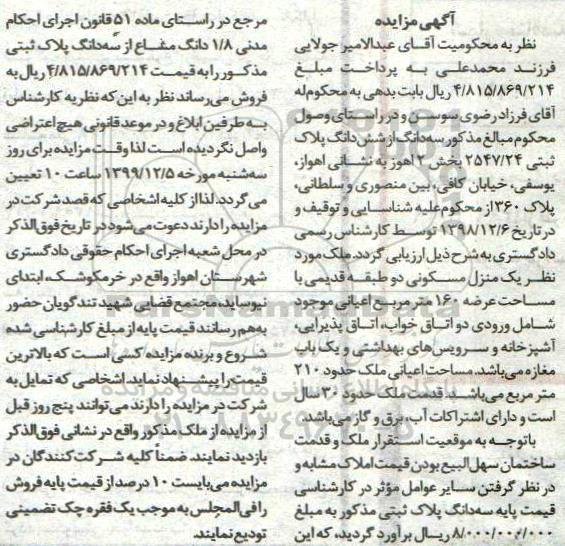 آگهی مزایده
نظر به محکومیت آقای عبدالامیر جولایی
فرزند محمدعلی به پرداخت مبلغ
۴/۸۱۵/۸۶۹/۲۱۴ ریال بابت بدهی به محکوم‌له
آقای فرزاد رضوی سوسن و در راستای وصول
محکوم مبالغ مذکور سه‌دانگ از شش دانگ پلاک
ثبتی ۲۵۴۷/۲۴ بخش ۲ اهوز به نشانی اهواز،
یوسفی، خیابان کافی، بین منصوری و سلطانی،
پلاک ۳۶۰ از محکوم‌علیه شناسایی و توقیف و
در تاریخ ۱۳۹۸/۱۲/۶ توسط کارشناس رسمی
دادگستری به شرح ذیل ارزیابی گردد. ملک مورد
نظر یک منزل مسکونی دو طبقه قدیمی با
مساحت عرصه ۱۶۰ متر مربع اعیانی موجود
شامل ورودی دو اتاق خواب، اتاق پذیرایی،
آشپزخانه و سرویس‌های بهداشتی و یک باب
مغازه می‌باشد. مساحت اعیانی ملک حدود ۲۱۰
متر مربع می‌باشد. قدمت ملک حدود ۳۰ سال
است و دارای اشتراکات آب، برق و گاز می‌باشد.
باتوجه به موقعیت استقرار ملک و قدمت
ساختمان سهل‌البیع بودن قیمت املاک مشابه و
در نظر گرفتن سایر عوامل مؤثر در کارشناسی
قیمت پایه سه‌دانگ پلاک ثبتی مذکور به مبلغ
۸/۰۰۰/۰۰۰/۰۰۰ ریال برآورد گردید، که این
مرجع در راستای ماده ۵۱ قانون اجرای احکام
مدنی ۱/۸ دانگ مشاع از سه‌دانگ پلاک ثبتی
مذکور را به قیمت ۴/۸۱۵/۸۶۹/۲۱۴ ریال به
فروش می‌رساند نظر به این که نظریه کارشناس
به طرفین ابلاغ و در موعد قانونی هیچ اعتراضی
واصل نگردیده است لذا وقت مزایده برای روز
سه‌شنبه مورخه ۱۳۹۹/۱۲/۵ ساعت ۱۰ تعیین
می‌گردد. لذا از کلیه اشخاصی که قصد شرکت در
مزایده را دارند دعوت می‌شود در تاریخ فوق‌الذکر
در محل شعبه اجرای احکام حقوقی دادگستری
شهرستان اهواز واقع در خرمکوشک، ابتدای
نیوساید، مجتمع قضایی شهید تندگویان حضور
به‌هم رسانند قیمت پایه از مبلغ کارشناسی شده
شروع و برنده مزایده کسی است که بالاترین
قیمت را پیشنهاد نماید. اشخاصی که تمایل به
شرکت در مزایده را دارند می‌توانند پنج روز قبل
از مزایده از ملک مذکور واقع در نشانی فوق‌الذکر
بازدید نمایند. ضمناً کلیه شرکت‌کنندگان در
مزایده می‌بایست ۱۰ درصد از قیمت پایه فروش
را فی‌المجلس به موجب یک فقره چک تضمینی
تودیع نمایند.